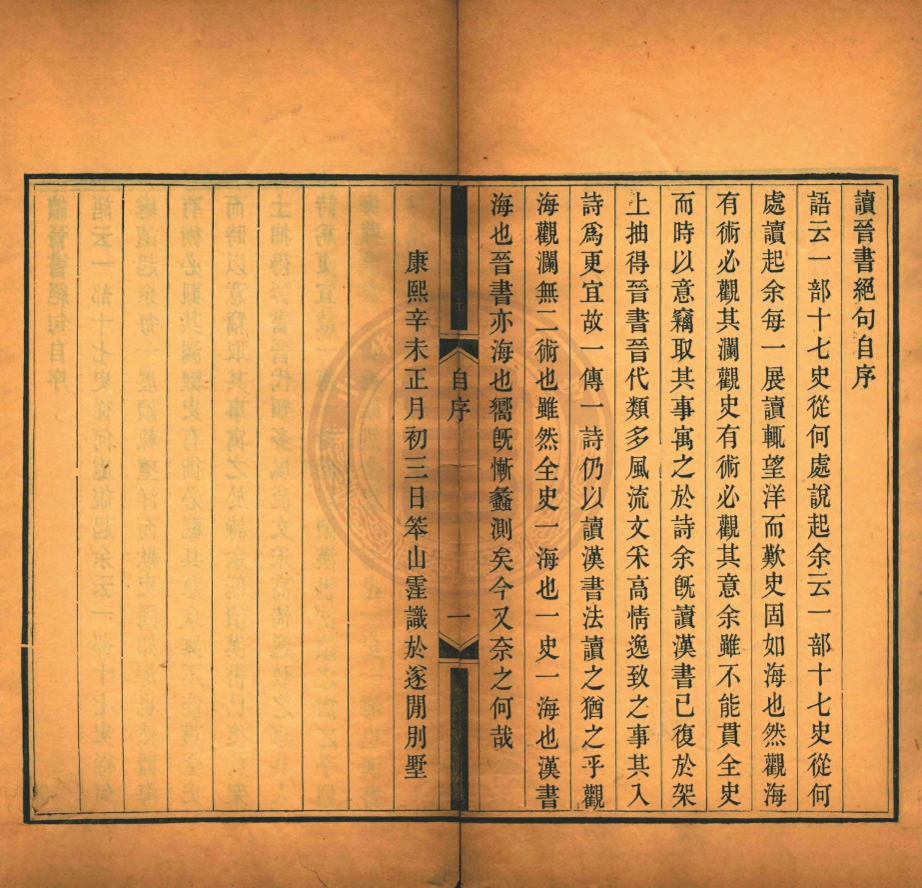 讀晉書絕句自序
語云一部十七史從何處說起余云一部十七史從何
處讀起余每一展讀輒望洋而歎史固如海也然觀海
有術必觀其瀾觀史有術必觀其意余雖不能貫全史
而時以意竊取其事寓之於詩余旣讀漢書已復於架
上抽得晉書晉代類多風流文采高情逸致之事其入
詩爲更宜故一傳一詩仍以讀漢書法讀之猶之乎觀
海觀瀾無二術也雖然全史一海也一史一海也漢書
海也晉書亦海也嚮旣慚蠡測矣今又奈之何哉
自序
一
康熙辛未正月初三日笨山霔識於遂閒別墅